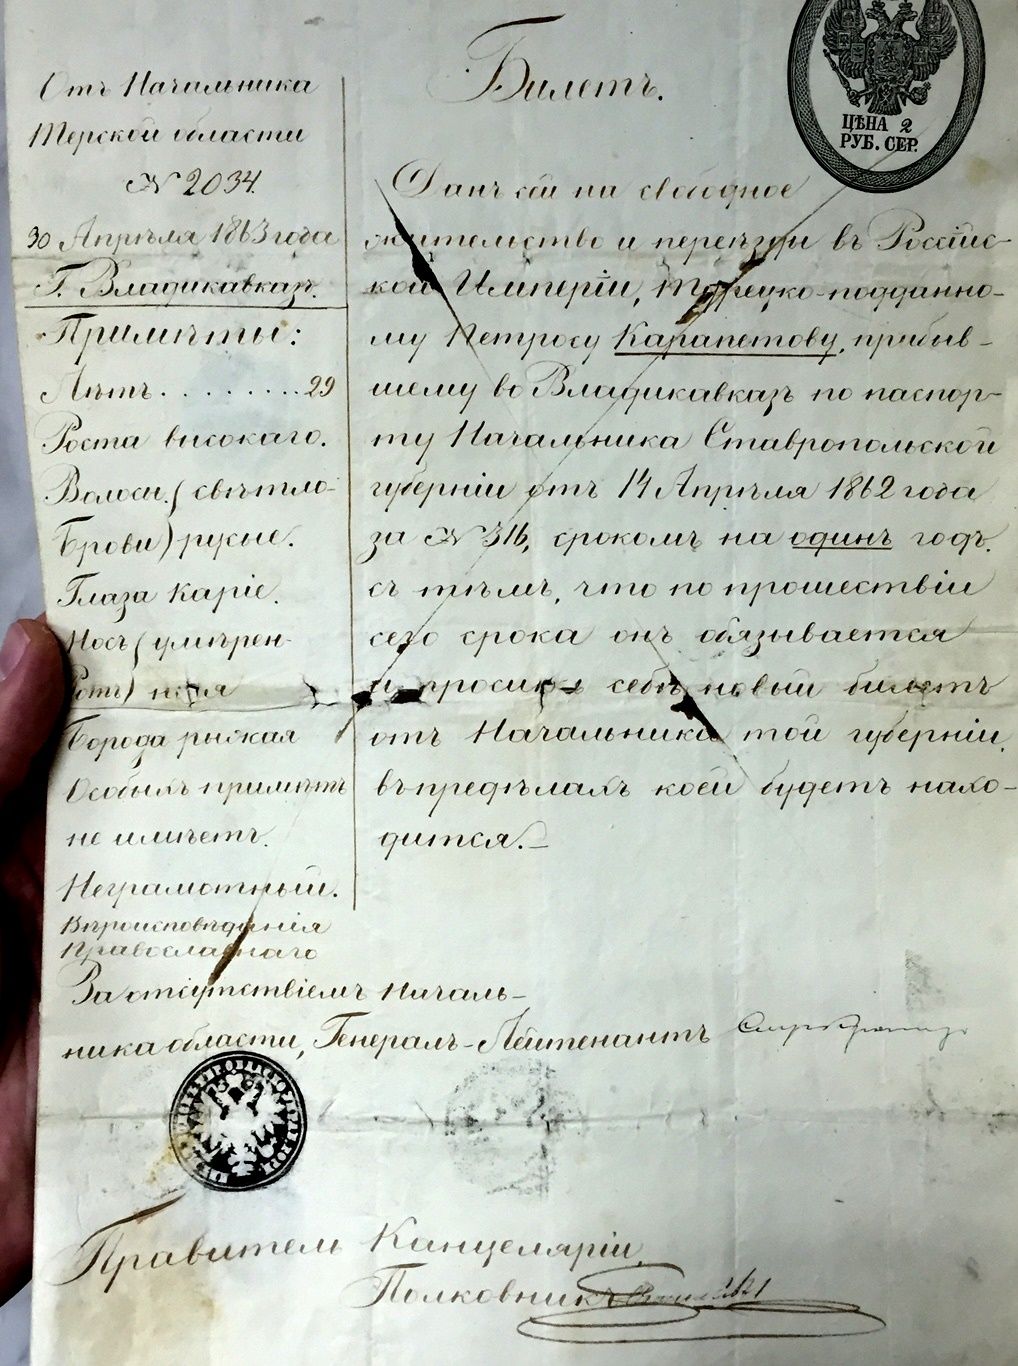 Билетъ.
ЦѢНА 2
РУБ. СЕР.
Отъ Начальника
Терской области
№ 2034.
30 Апрѣля 1863 года
Г. Владикавказъ.
Примѣты:
Лѣтъ........29
Роста высокаго.
Волосы ( свѣтло-
Брови ) русые.
Глаза Каріе.
Носъ ( умѣрен-
Ротъ ) ные
Борода рыжая
Особыхъ примѣтъ
не имѣетъ.
Неграмотный.
Вѣроисповѣданія
Православнаго
Данъ сей на свободное
жительство и переѣзды въ Россійс-
кой Имперіи, Турецко-подданно-
му Петросу Карапетову, прибыв-
шему во Владикавказъ по паспор-
ту Начальника Ставропольской
губерніи отъ 14 Апрѣля 1862 года
за № 316, срокомъ на одинъ годъ.
съ тѣмъ, что по прошествіи
сего срока онъ обязывается
испросить себѣ новый билетъ
отъ Начальника той губерніи,
въ предѣлахъ коей будетъ нахо-
дится.—
За отсутствіемъ Началь-
ника области, Генералъ-Лейтенантъ
Правитель Канцеляріи,
Полковникъ